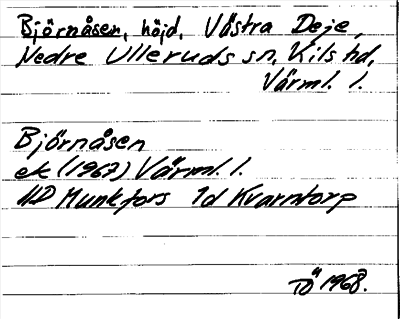 Björnåsen, höjd, Västra Deje,
Nedre Ulleruds sn, Kils hd,
Värml. l.
Björnåsen
ek (1967) Värml. l.
11D Munkfors 1d Kvarntorp
TÖ 1968.